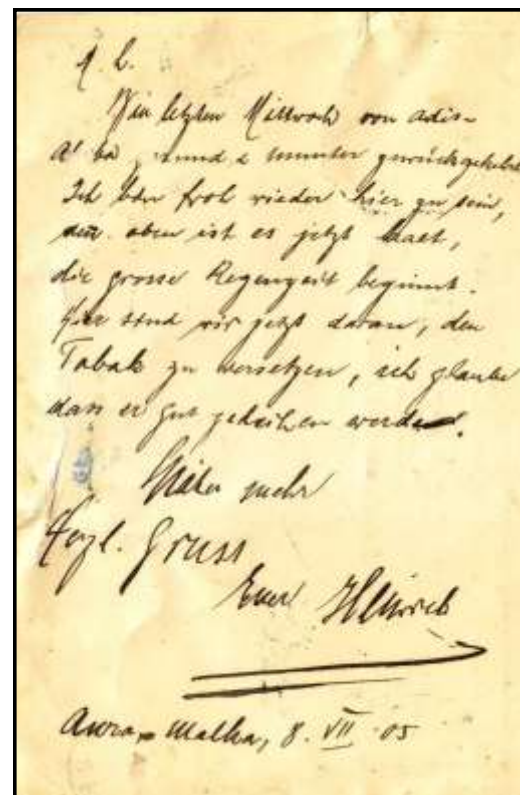 M. L.
Bin letzten Mittwoch von Adis-
A'ba gesund & munter zurückgekehrt
Ich bin froh wieder hier zu sein,
denn oben ist es jetzt kalt,
die grosse Regenzeit beginnt.
Hier sind wir jetzt daran, den
Tabak zu versetzen, ich glaube
dass er gut gedeihen werde.
Später mehr
Herzl. Gruss
Euer Heinrich
Malka, 8. VII 05